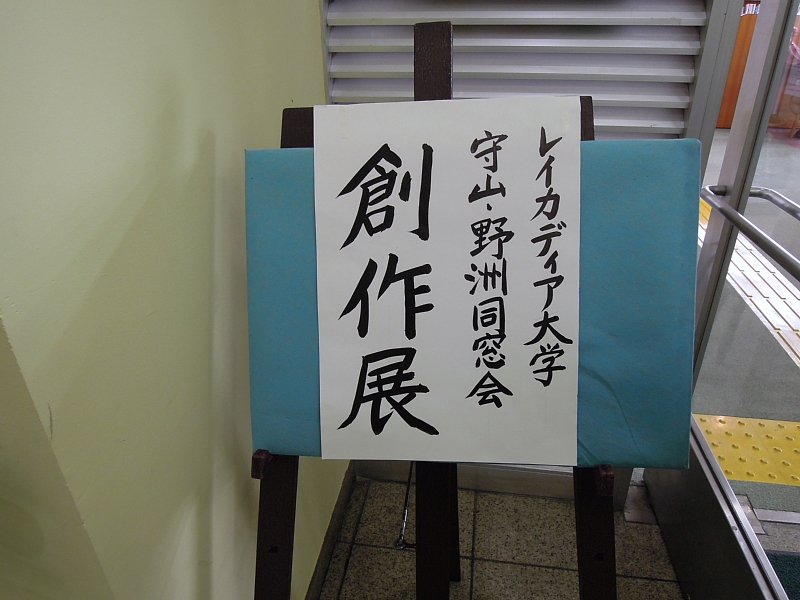 レイカディア大学
守山・野洲同窓会
創作展